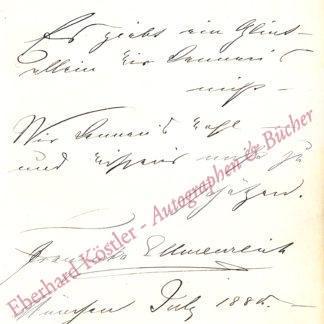 Es giebt ein Glück –
allein wir kennen's
nicht –
Wir kennen's wohl –
und wissen's nicht zu
schätzen.
Franziska Ellmenreich
München July 188
Eberhard Köstler - Autographen & Bücher